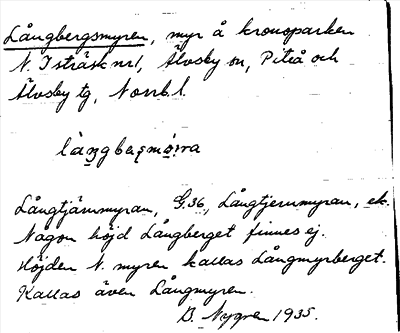 Långbergsmyren, myr å kronoparken
N. Isträsk nr 1, Älvsby sn, Piteå och
Älvsby tg, Norrb. l.
Långtjärnmyran, G. 36, Långtjernmyran, ek.
Någon höjd Långberget finnes ej.
Höjden N. myren kallas Långmyrberget.
Kallas även Långmyren.
B. Nygren 1935.